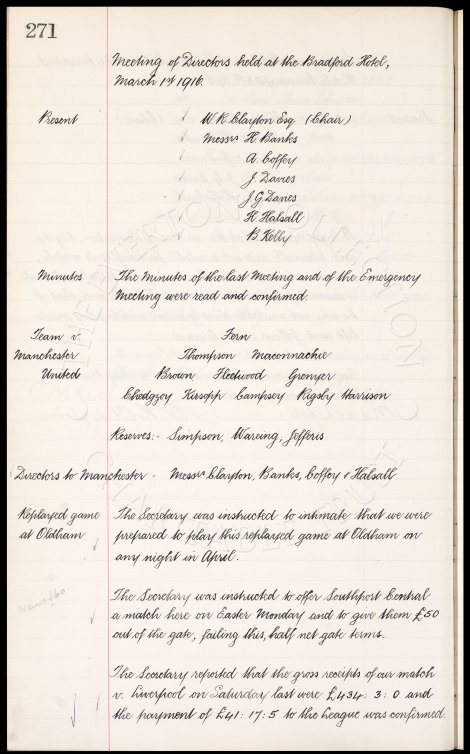 271
Meeting of Directors held at the Bradford Hotel,
March 1st 1916.
Present W. R. Clayton Esq (Chair)
Messrs H. Banks
A. Coffey
J. Davies
J. G. Davies
H. Halsall
B. Kelly
Minutes The Minutes of the last Meeting and of the Emergency
Meeting were read and confirmed.
Team v. Fern
Manchester Thompson Maconnachie
United Brown Fleetwood Grenyer
Chedgzoy Kirsopp Campsey Rigsby Harrison
Reserves:- Simpson, Wareing, Jefferis
Directors to Manchester - Messrs Clayton, Banks, Coffey & Halsall
Replayed game The Secretary was instructed to intimate that we were
at Oldham prepared to play this replayed game at Oldham on
any night in April.
want £60 The Secretary was instructed to offer Southport Central
a match here on Easter Monday and to give them £50
out of the gate, failing this, half net gate terms.
The Secretary reported that the gross receipts of our match
v. Liverpool on Saturday last were £434 : 3 : 0 and
the payment of £41 : 17 : 5 to the League was confirmed.